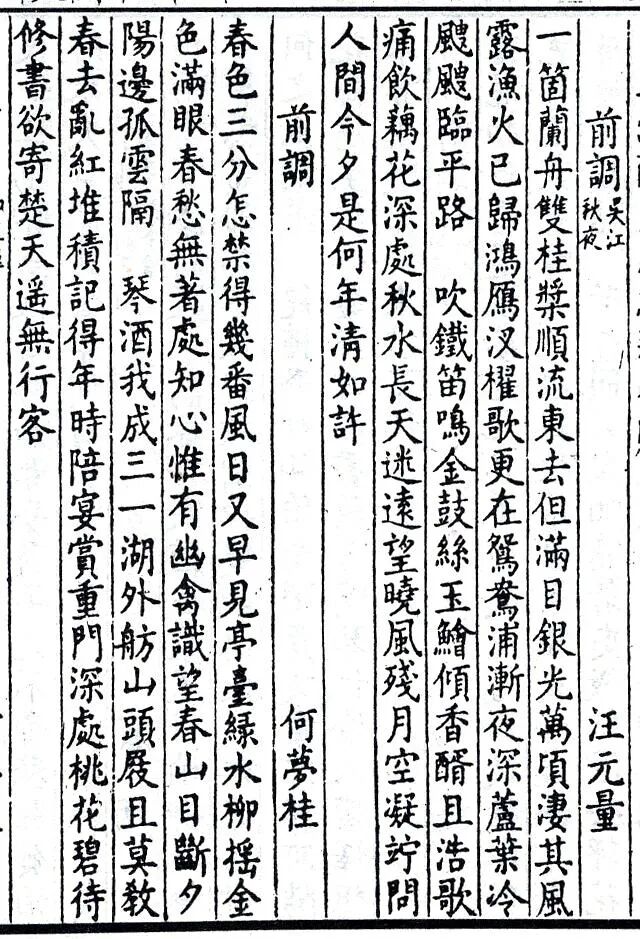 前調吳江秋夜 汪元量
一箇蘭舟雙桂槳順流東去但滿目銀光萬頃淒其風
露漁火已歸鴻鴈汊櫂歌更在鴛鴦浦漸夜深蘆葉冷
颼颼臨平路 吹鐵笛鳴金鼓絲玉鱠傾香醑且浩歌
痛飲藕花深處秋水長天迷遠望曉風殘月空凝竚問
人間今夕是何年清如許
前調 何夢桂
春色三分怎禁得幾番風日又早見亭臺綠水柳摇金
色滿眼春愁無著處知心惟有幽禽識望春山目斷夕
陽邊孤雲隔 琴酒我成三一湖外舫山頭屐且莫教
春去亂紅堆積記得年時陪宴賞重門深處桃花碧待
修書欲寄楚天遥無行客